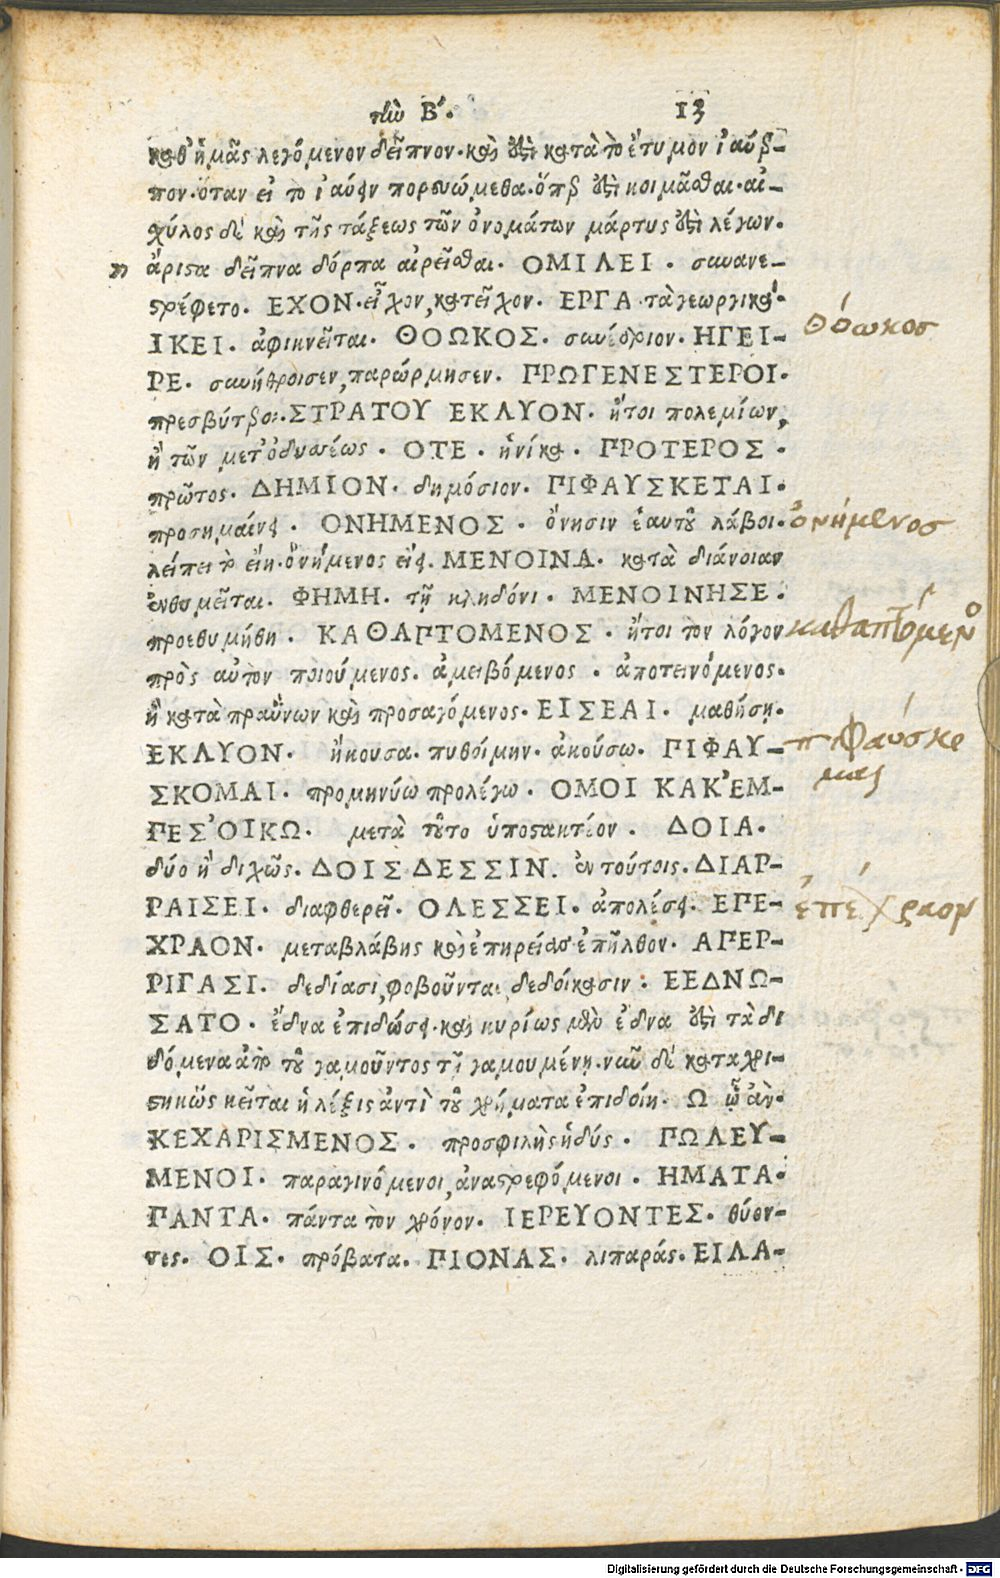 τὴν Β΄. 13
καθ᾽ ἡμᾶς λεγόμενον δεῖπνον· καὶ ἔστι κατὰ τὸ ἔτυμον ἰαύερ-
πον· ὅταν εἰ τὸ ἰαύειν πορευώμεθα· ὅπερ ἐστὶ κοιμᾶσθαι· αἰ-
χύλος δὲ καὶ τῆς τάξεως τῶν ὀνομάτων μάρτυς ἐστὶ λέγων·
ἄριστα δεῖπνα δόρπα αἱρεῖσθαι. ΟΜΙΛΕΙ. συνανε-
στρέφετο. ΕΧΟΝ. εἶχον, κατεῖχον. ΕΡΓΑ· τὰ γεωργικά·
ΙΚΕΙ. ἀφικνεῖται. ΘΟΩΚΟΣ. συνέδριον. ΗΓΕΙ- θόωκοσ
ΡΕ. συνήθροισεν, παρώρμησεν. ΠΡΩΓΕΝΕΣΤΕΡΟΙ.
πρεσβύτεροι. ΣΤΡΑΤΟΥ ΕΚΛΥΟΝ. ἤτοι πολεμίων,
ἢ τῶν μετ᾽ ὀδυσσέως. ΟΤΕ. ἡνίκα. ΠΡΟΤΕΡΟΣ.
πρῶτος. ΔΗΜΙΟΝ. δημόσιον. ΠΙΦΑΥΣΚΕΤΑΙ.
προσημαίνει. ΟΝΗΜΕΝΟΣ. ὄνησιν ἑαυτοῦ λάβοι. ὀνήμενοσ
λείπει τὸ εἴη. ὀνήμενος εἴη. ΜΕΝΟΙΝΑ. κατὰ διάνοιαν
ἐνθυμεῖται. ΦΗΜΗ. τῇ κληδόνι. ΜΕΝΟΙΝΗΣΕ.
προεθυμήθη. ΚΑΘΑΠΤΟΜΕΝΟΣ. ἤτοι τὸν λόγον καθαπτόμενο
πρὸς αὐτὸν ποιούμενος. ἀμειβόμενος. ἀποτεινόμενος.
ἢ καταπραΰνων καὶ προσαγόμενος. ΕΙΣΕΑΙ. μαθήσῃ.
ΕΚΛΥΟΝ. ἤκουσα. πυθοίμην. ἀκούσω. ΠΙΦΑΥ- πιφαύσκο
μαι
ΣΚΟΜΑΙ. προμηνύω προλέγω. ΟΜΟΙ ΚΑΚ᾽ ΕΜ-
ΠΕΣ᾽ ΟΙΚΩ. μετὰ τοῦτο ὑποστακτέον. ΔΟΙΑ.
δύο ἢ διχῶς. ΔΟΙΣΔΕΣΣΙΝ. ἐν τούτοις. ΔΙΑΡ-
ΡΑΙΣΕΙ. διαφθερεῖ. ΟΛΕΣΣΕΙ. ἀπολέσει. ΕΠΕ- ἐπέχραον
ΧΡΑΟΝ. μεταβλάβης καὶ ἐπηρείας ἐπῆλθον. ΑΠΕΡ-
ΡΙΓΑΣΙ. δεδίασι, φοβοῦνται, δεδοίκασιν: ΕΕΔΝΩ-
ΣΑΤΟ. ἕδνα ἐπιδώσει. καὶ κυρίως μὲν ἕδνα ἐστὶ τὰ δι
δόμενα ἀπὸ τοῦ γαμοῦντος τῇ γαμουμένῃ. νῦν δὲ καταχρη-
στικῶς κεῖται ἡ λέξις ἀντὶ τοῦ χρήματα ἐπιδοίη. Ω ᾧ ἂν.
ΚΕΧΑΡΙΣΜΕΝΟΣ. προσφιλὴς ἡδύς. ΠΩΛΕΥ-
ΜΕΝΟΙ. παραγινόμενοι, ἀναστρεφόμενοι. ΗΜΑΤΑ
ΠΑΝΤΑ. πάντα τὸν χρόνον. ΙΕΡΕΥΟΝΤΕΣ. θύον-
τες. ΟΙΣ. πρόβατα. ΠΙΟΝΑΣ. λιπαράς. ΕΙΛΑ-
Digitalisierung gefördert durch die Deutsche Forschungsgemeinschaft - DFG